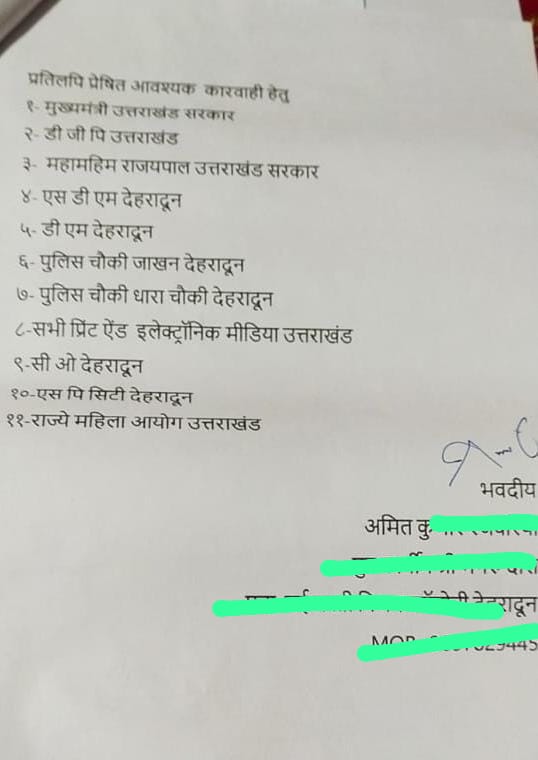 प्रतिलपि प्रेषित आवश्यक कारवाही हेतु
१- मुख्यमंत्री उत्तराखंड सरकार
२- डी जी पि उत्तराखंड
३- महामहिम राजयपाल उत्तराखंड सरकार
४- एस डी एम देहरादून
५- डी एम देहरादून
६- पुलिस चौकी जाखन देहरादून
७- पुलिस चौकी धारा चौकी देहरादून
८-सभी प्रिंट ऐंड इलेक्ट्रॉनिक मीडिया उत्तराखंड
९-सी ओ देहरादून
१०-एस पि सिटी देहरादून
११-राज्ये महिला आयोग उत्तराखंड
भवदीय
अमित